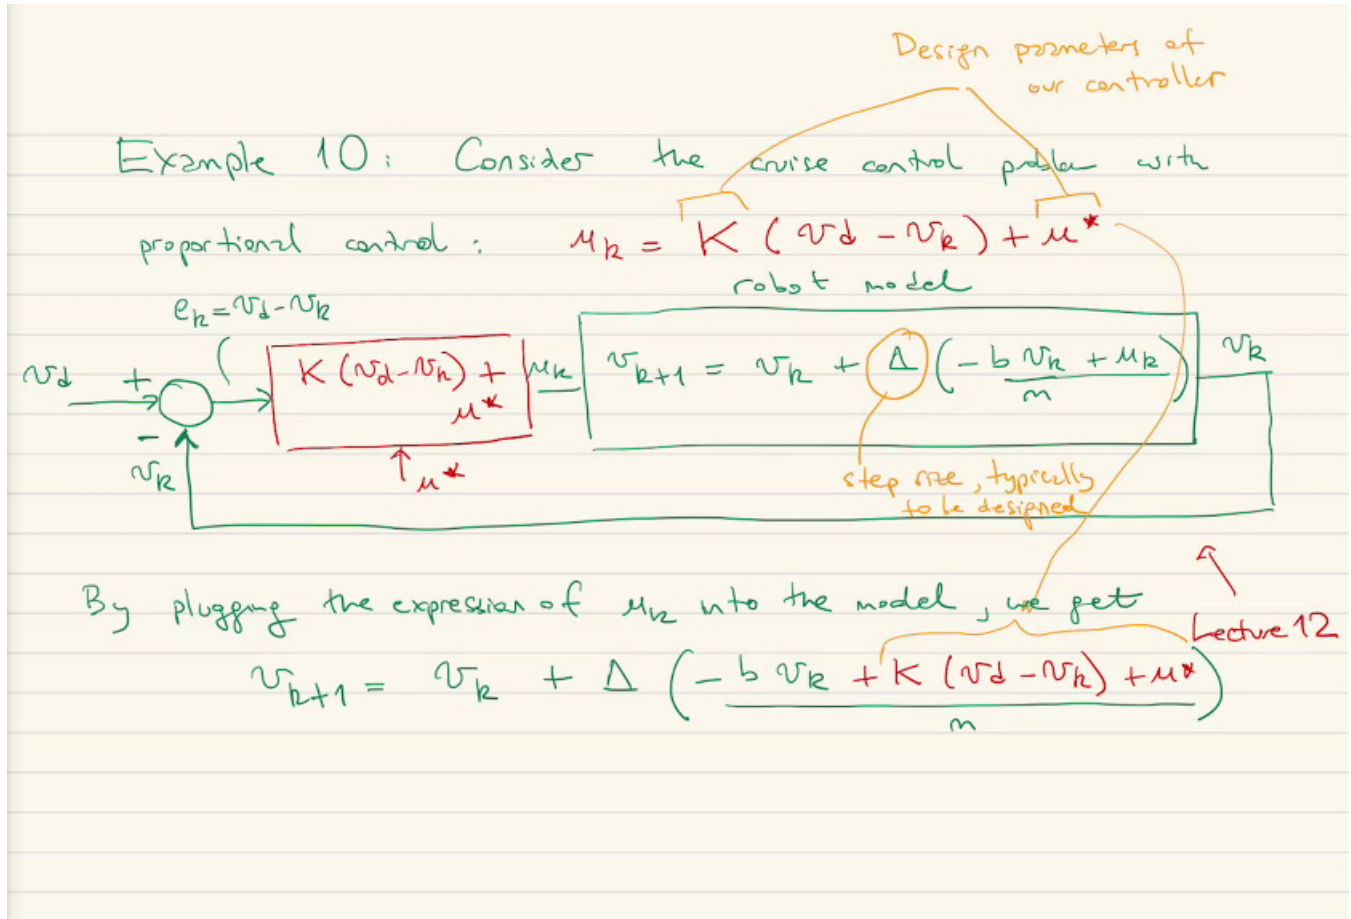 Design parameters of
our controller
Example 10: Consider the cruise control problem with
proportional control: u_k = K (v_d - v_k) + u*
robot model
e_k = v_d - v_k
v_d + K (v_d - v_k) + u* u_k v_{k+1} = v_k + Δ ((-b v_k + u_k)/m) v_k
-
v_k
u*
step size, typically
to be designed
By plugging the expression of u_k into the model, we get
Lecture 12
v_{k+1} = v_k + Δ ((-b v_k + K (v_d - v_k) + u*)/m)